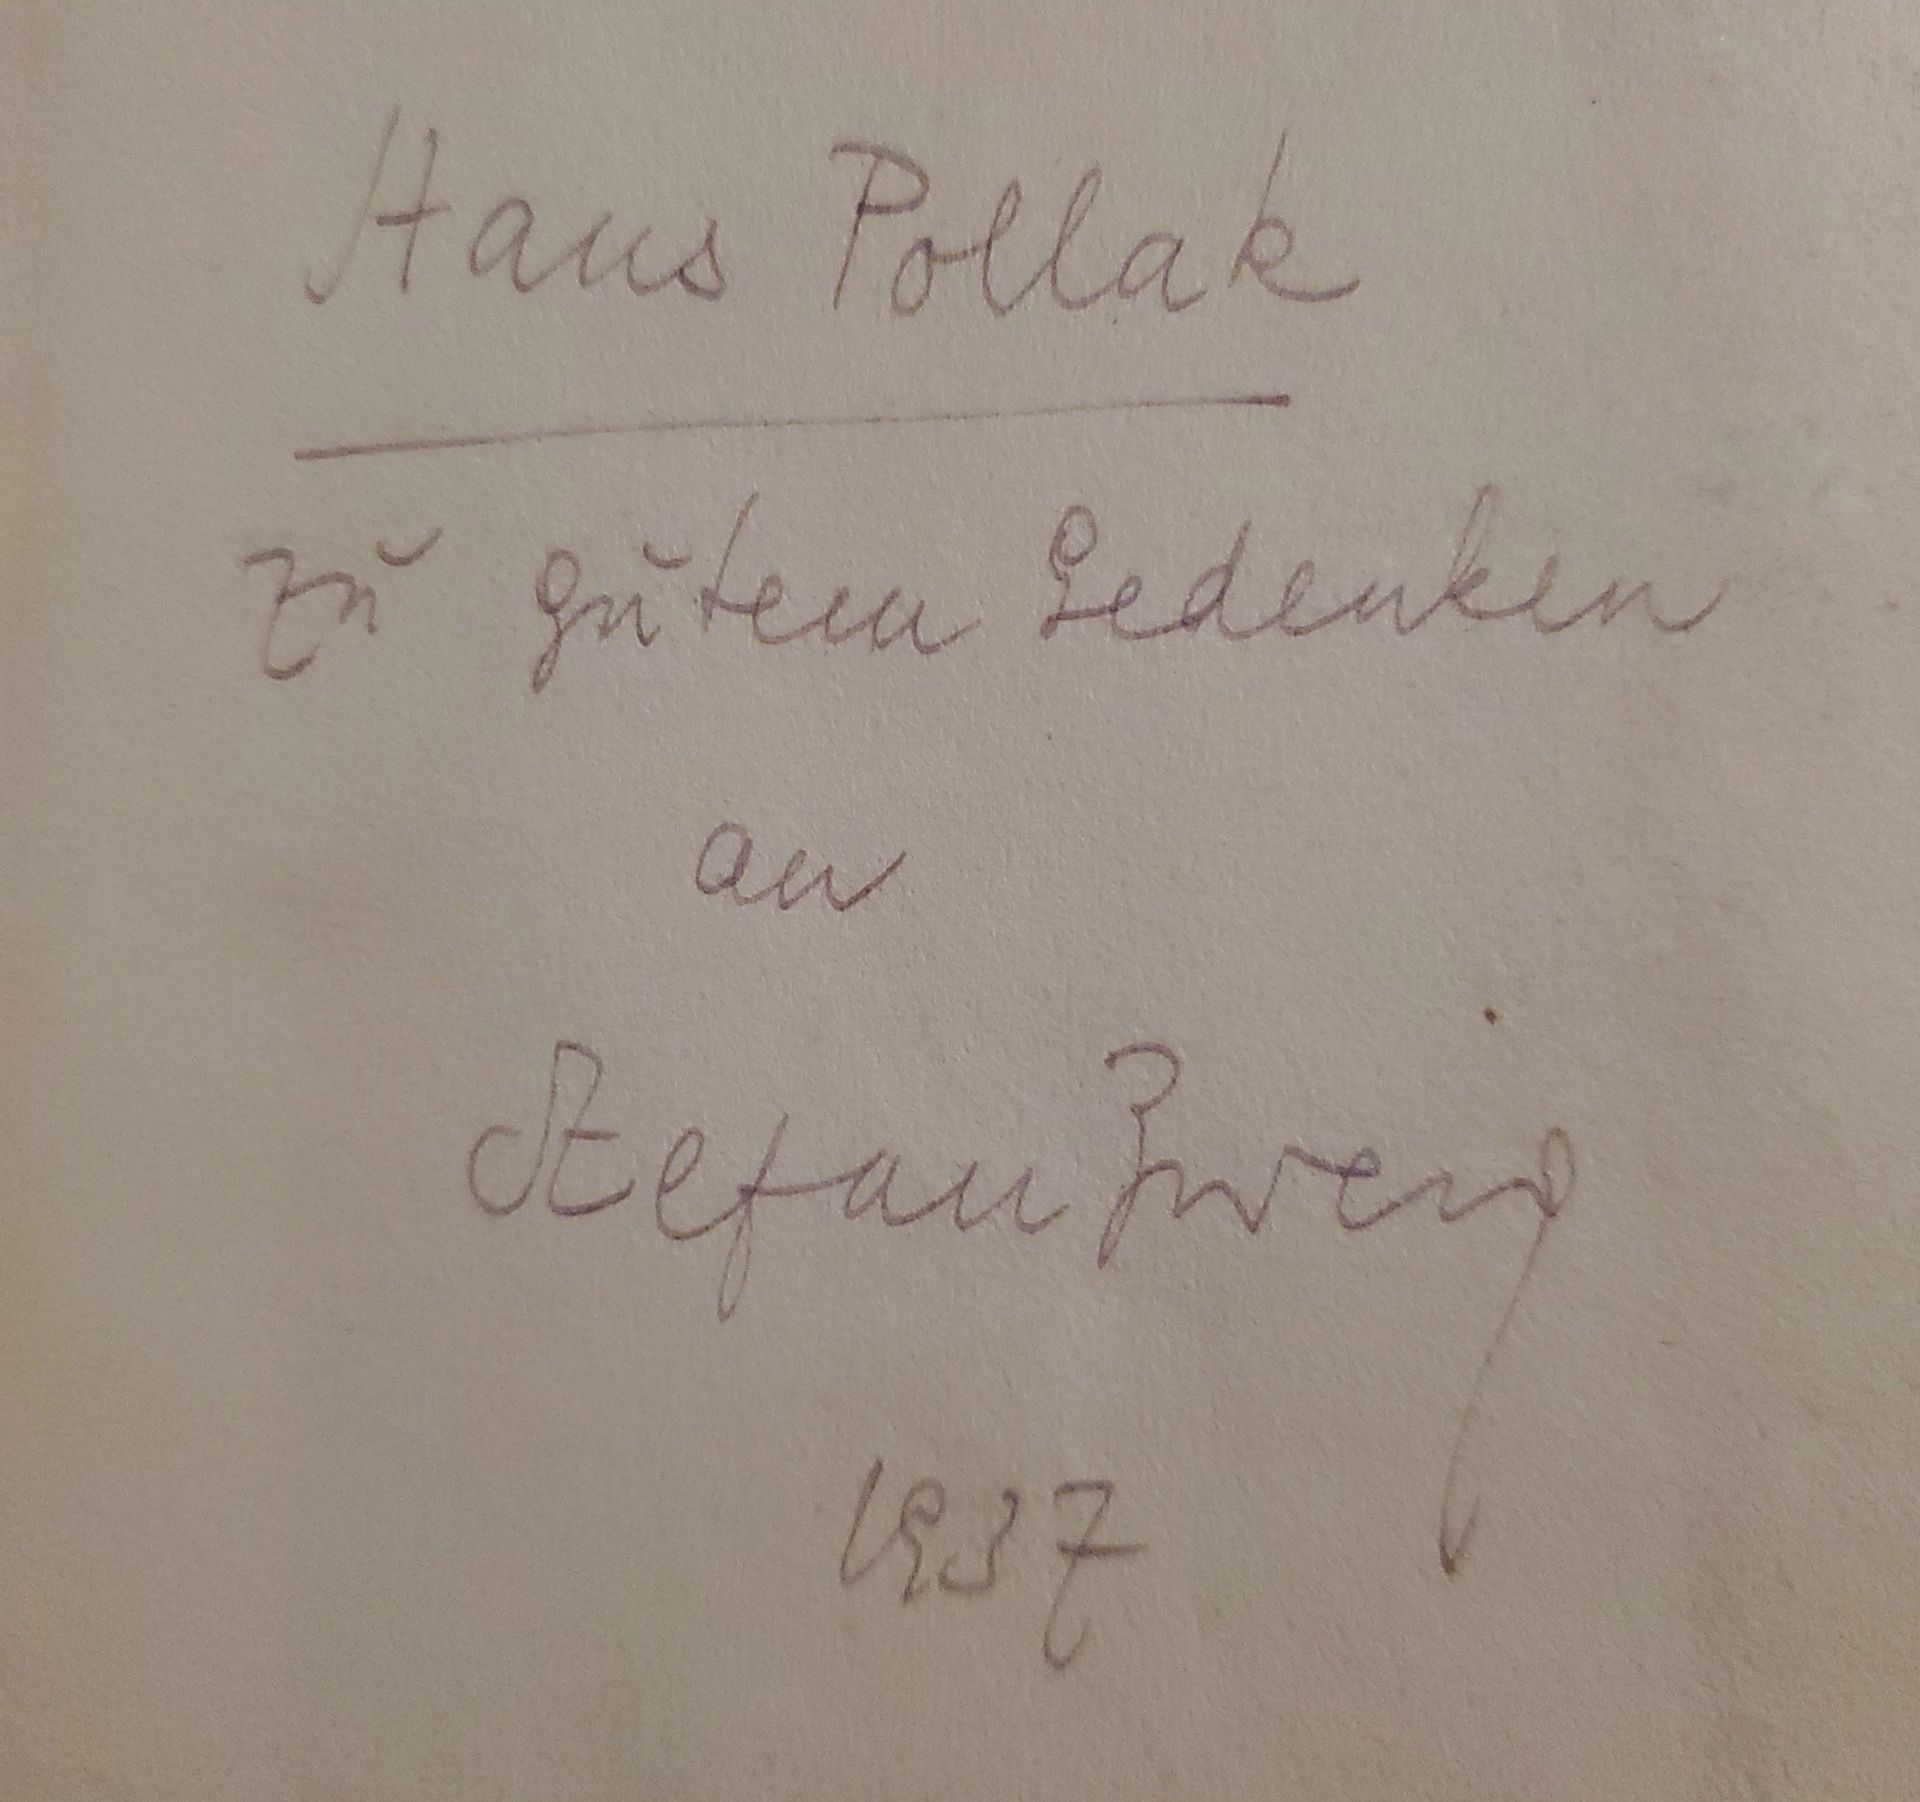 Hans Pollak
zu gutem Gedenken
an
Stefan Zweig
1937